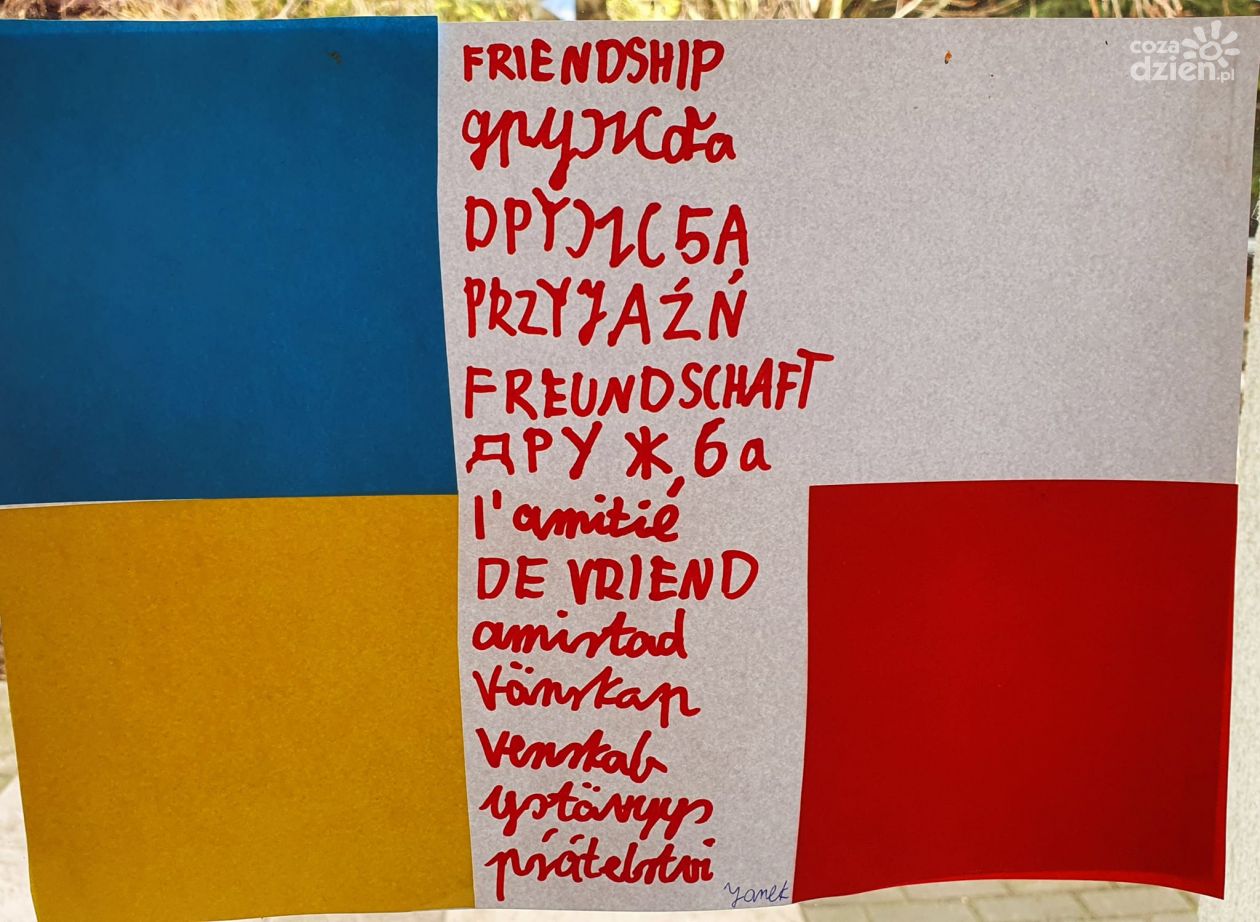 coza
dzien.pl
FRIENDSHIP
дружба
DРУЖ5A
PRZYJAŹŃ
FREUNDSCHAFT
ДРУЖ,бa
l'amitié
DE VRIEND
amistad
vänskap
venskab
ystävyys
přátelství
Yanek